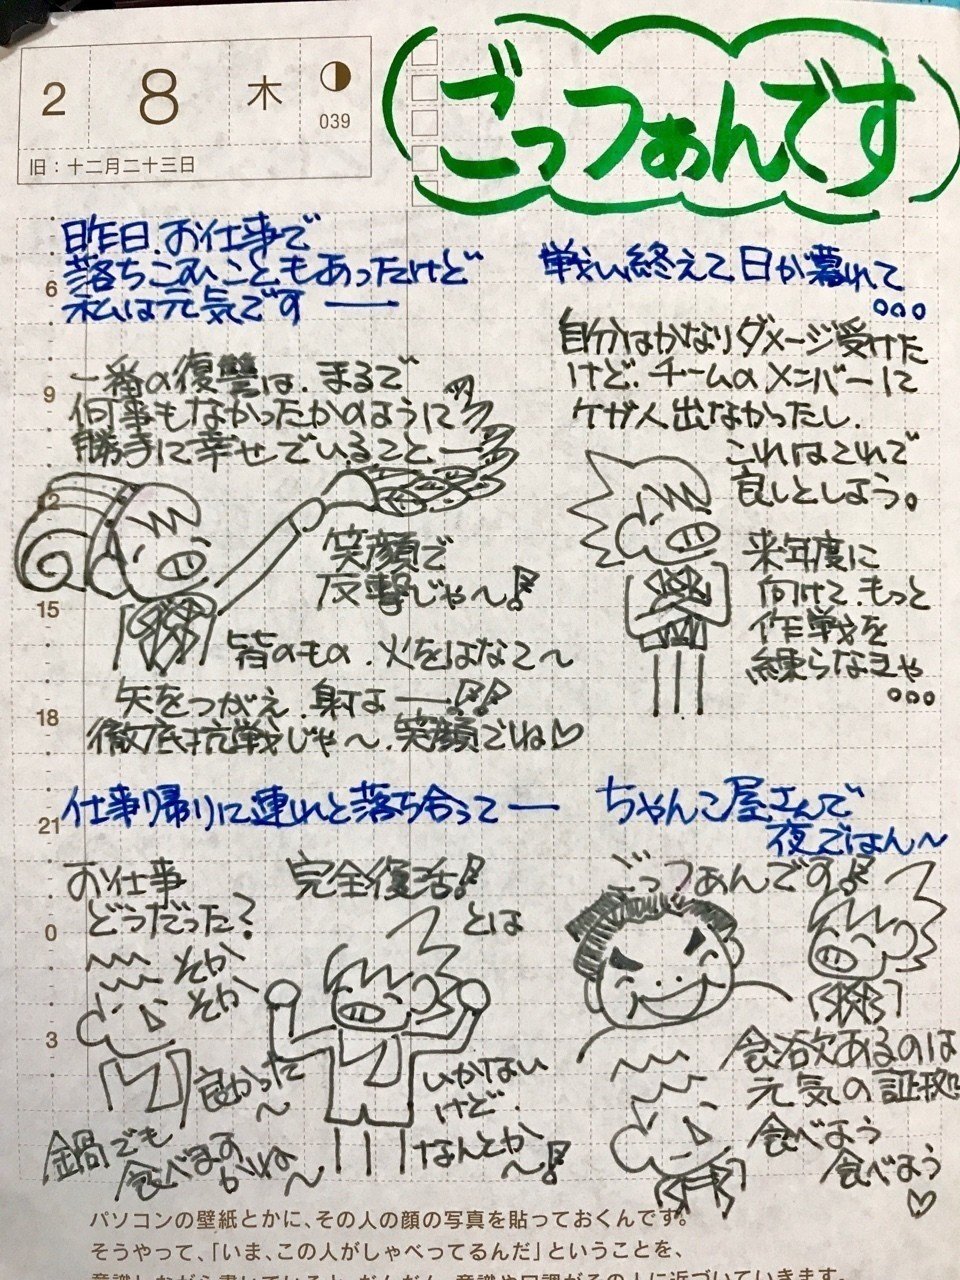 2 8 木
039
旧：十二月二十三日
ごっつぁんです
昨日、お仕事で
落ちこむこともあったけど
私は元気です ——
6
9
12
15
18
21
0
3
一番の復讐は、まるで
何事もなかったかのように
勝手に幸せでいること——
笑顔で
反撃じゃ〜!
皆のもの、火をはなて〜
矢をつがえ、射よ——!!
徹底抗戦じゃ〜、笑顔でね♡
戦い終えて日が暮れて
...
自分はかなりダメージ受けた
けど、チームのメンバーに
ケガ人出なかったし、
これはこれで
良しとしよう。
来年度に
向けて、もっと
作戦を
練らなきゃ
...
仕事帰りに連れと落ち合って——
お仕事
どうだった?
そか
そか
良かった
〜
鍋でも
食べますか
がね〜
完全復活!
とは
いかない
けど
なんとか
〜!
ちゃんこ屋さんで
夜ごはん〜
ごっつぁんです!
食欲あるのは
元気の証拠
食べよう
食べよう
♡
パソコンの壁紙とかに、その人の顔の写真を貼っておくんです。
そうやって、「いま、この人がしゃべってるんだ」ということを、
意識しながら書いていると、だんだん、意識や口調がその人に近づいていきます。